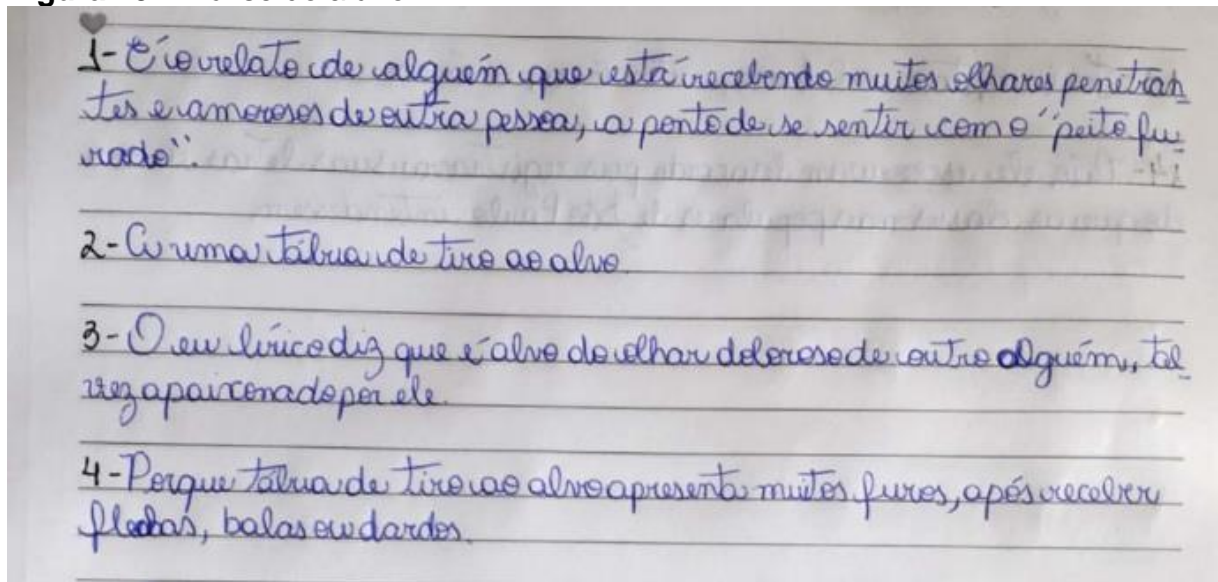 1- É o relato de alguém que está recebendo muitos olhares penetran
tes e amorosos de outra pessoa, a ponto de se sentir com o "peito fu
rado".
2- A uma tábua de tiro ao alvo.
3- O eu lírico diz que é alvo do olhar doloroso de outro alguém, tal
vez apaixonado por ele.
4- Porque tábua de tiro ao alvo apresenta muitos furos, após receber
flechas, balas ou dardos.